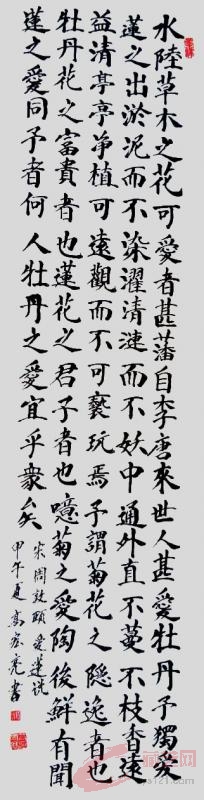 水陸草木之花可愛者甚藩自李唐來世人甚愛牡丹予獨愛
蓮之出淤泥而不染濯清漣而不妖中通外直不蔓不枝香遠
益清亭亭净植可遠觀而不可褻玩焉予謂菊花之隱逸者也
牡丹花之富貴者也蓮花之君子者也噫菊之愛陶後鮮有聞
蓮之愛同予者何人牡丹之愛宜乎衆矣
宋周敦頤愛蓮説
甲午夏高宏亮書